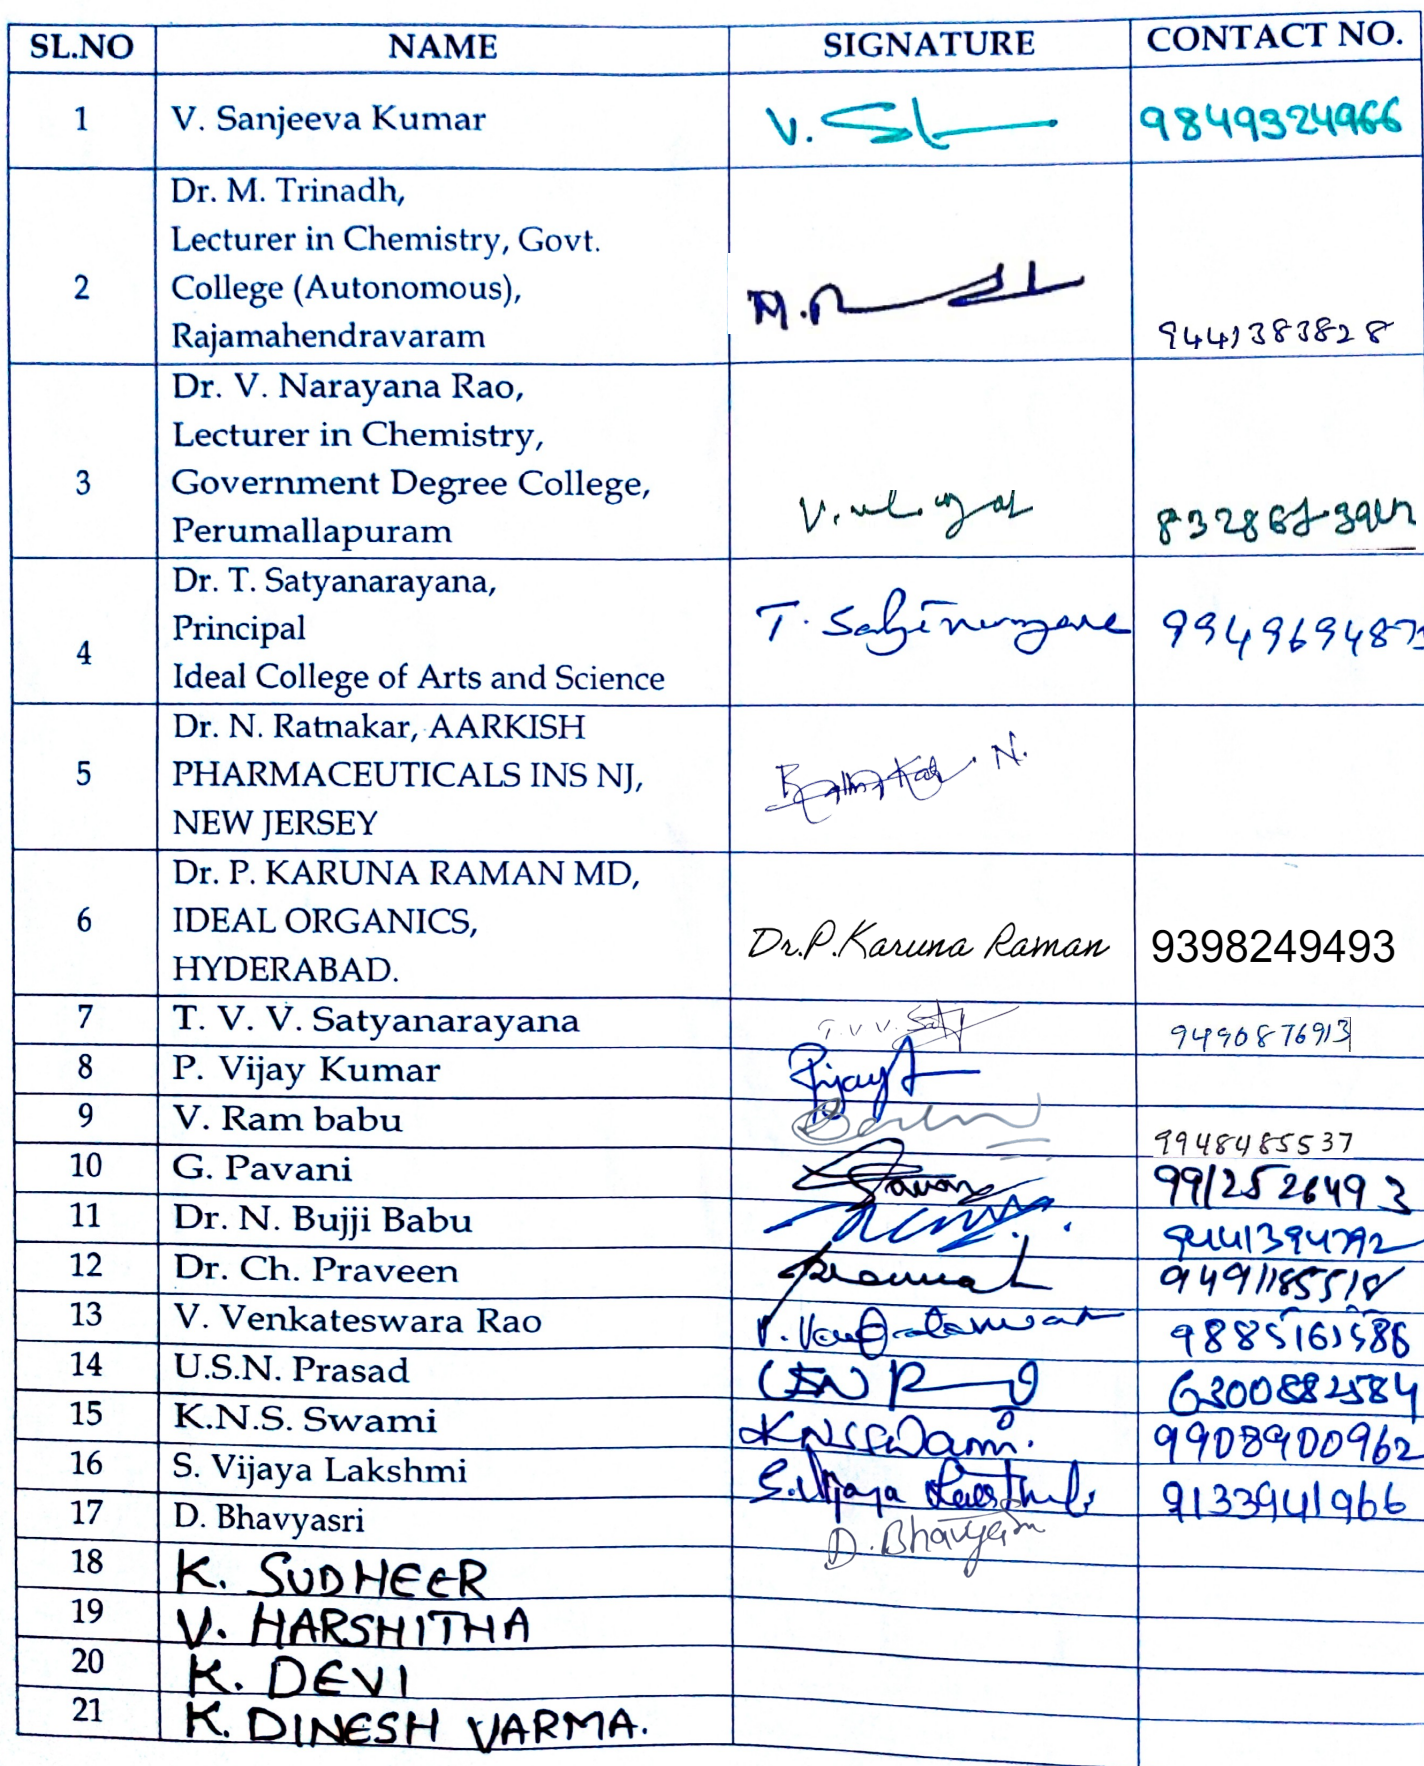 SL.NO NAME SIGNATURE CONTACT NO.
1 V. Sanjeeva Kumar V. 9849324966
Dr. M. Trinadh,
Lecturer in Chemistry, Govt.
2 College (Autonomous), M.
Rajamahendravaram 9441383828
Dr. V. Narayana Rao,
Lecturer in Chemistry,
3 Government Degree College, V.
Perumallapuram
Dr. T. Satyanarayana,
4 Principal T.
Ideal College of Arts and Science
Dr. N. Ratnakar, AARKISH
5 PHARMACEUTICALS INS NJ, N.
NEW JERSEY
Dr. P. KARUNA RAMAN MD,
6 IDEAL ORGANICS, Dr.P.Karuna Raman 9398249493
HYDERABAD.
7 T. V. V. Satyanarayana T. V V. 9490876913
8 P. Vijay Kumar
9 V. Ram babu 9948485537
10 G. Pavani 9912526493
11 Dr. N. Bujji Babu 9441394792
12 Dr. Ch. Praveen
13 V. Venkateswara Rao V.
14 U.S.N. Prasad USN 6300882584
15 K.N.S. Swami KNSSwami. 9908900962
16 S. Vijaya Lakshmi S.Vijaya 9133941966
17 D. Bhavyasri D. Bhavyasri
18 K. SUDHEER
19 V. HARSHITHA
20 K. DEVI
21 K. DINESH VARMA.